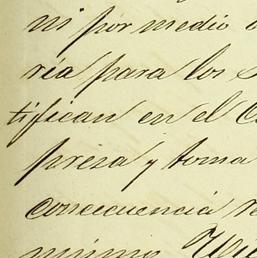 ni por medio
ría para los
tifican en el
preza y toma
consecuencia
mismo